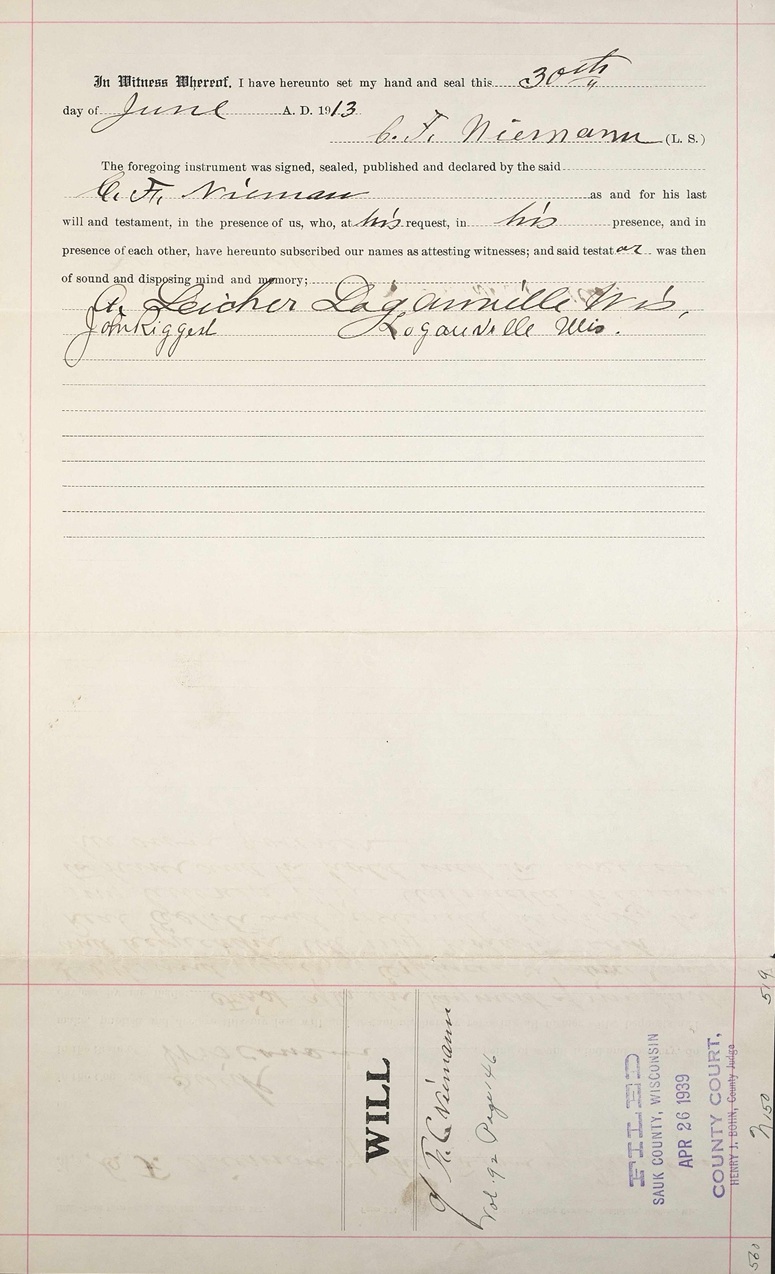 In Witness Whereof, I have hereunto set my hand and seal this 30th
day of June A. D. 1913
C. F. Niemann (L. S.)
The foregoing instrument was signed, sealed, published and declared by the said
C. F. Nieman as and for his last
will and testament, in the presence of us, who, at his request, in his presence, and in
presence of each other, have hereunto subscribed our names as attesting witnesses; and said testator was then
of sound and disposing mind and memory;
A. Leicher Loganville Wis,
John Riggert Loganville Wis.
WILL
of F. C. Niemann
Vol. 92 Page 46
FILED
SAUK COUNTY, WISCONSIN
APR 26 1939
COUNTY COURT,
HENRY J. BOHN, County Judge
519
560